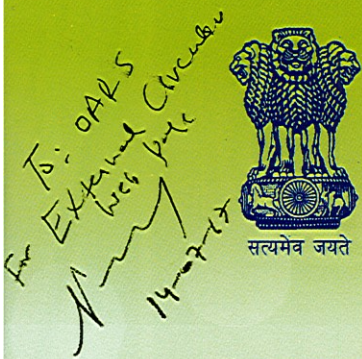 To: OARS
For External Circular
Web
14-07-17
सत्यमेव जयते